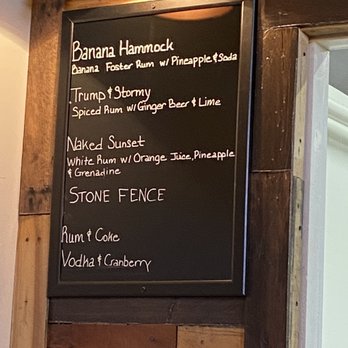 Banana Hammock
Banana Foster Rum w/ Pineapple & Soda
Trump & Stormy
Spiced Rum w/ Ginger Beer & Lime
Naked Sunset
White Rum w/ Orange Juice, Pineapple
& Grenadine
STONE FENCE
Rum & Coke
Vodka & Cranberry